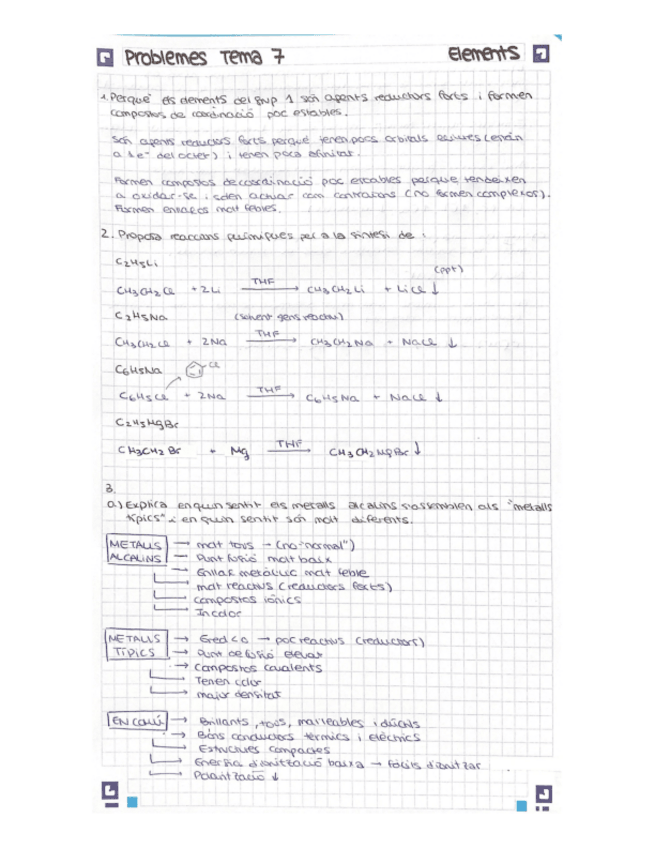 Problemes Tema 7
Elements
1. Perquè els elements del grup 1 són agents reductors forts i formen
compostos de coordinació poc estables.
Són agents reductors forts perquè tenen pocs orbitals
a 1e- del octet) i tenen poca afinitat.
Formen compostos de coordinació poc estables perquè tendeixen
a oxidar-se i solen actuar com contraions (no formen complexos).
Formen enllaços molt febles.
2. Proposa reaccions químiques per a la síntesi de:
C2H5Li
(ppt)
CH3CH2Cl + 2Li THF → CH3CH2Li + LiCl ↓
C2H5Na
(solvent gens reactiu)
CH3CH2Cl + 2Na THF → CH3CH2Na + NaCl ↓
C6H5Na
Cl
C6H5Cl + 2Na THF → C6H5Na + NaCl ↓
C2H5MgBr
CH3CH2Br + Mg THF → CH3CH2MgBr ↓
3.
a) Explica en quin sentit els metalls alcalins s'assemblen als "metalls
típics" i en quin sentit són molt diferents.
METALLS ALCALINS
→ molt tous → (no "normal")
Punt fusió molt baix
Enllaç metàl·lic molt feble
molt reactius (reductors forts)
compostos iònics
Incolor
METALLS TÍPICS
→ Ered < 0 → poc reactius (reductors)
→ Punt de fusió elevat
→ Compostos covalents
Tenen color
major densitat
EN COMÚ
→ Brillants, tous, mal·leables i dúctils
→ Bons conductors tèrmics i elèctrics
Estructures compactes
Energia d'ionització baixa → fàcils d'ionitzar
Polarització ↓